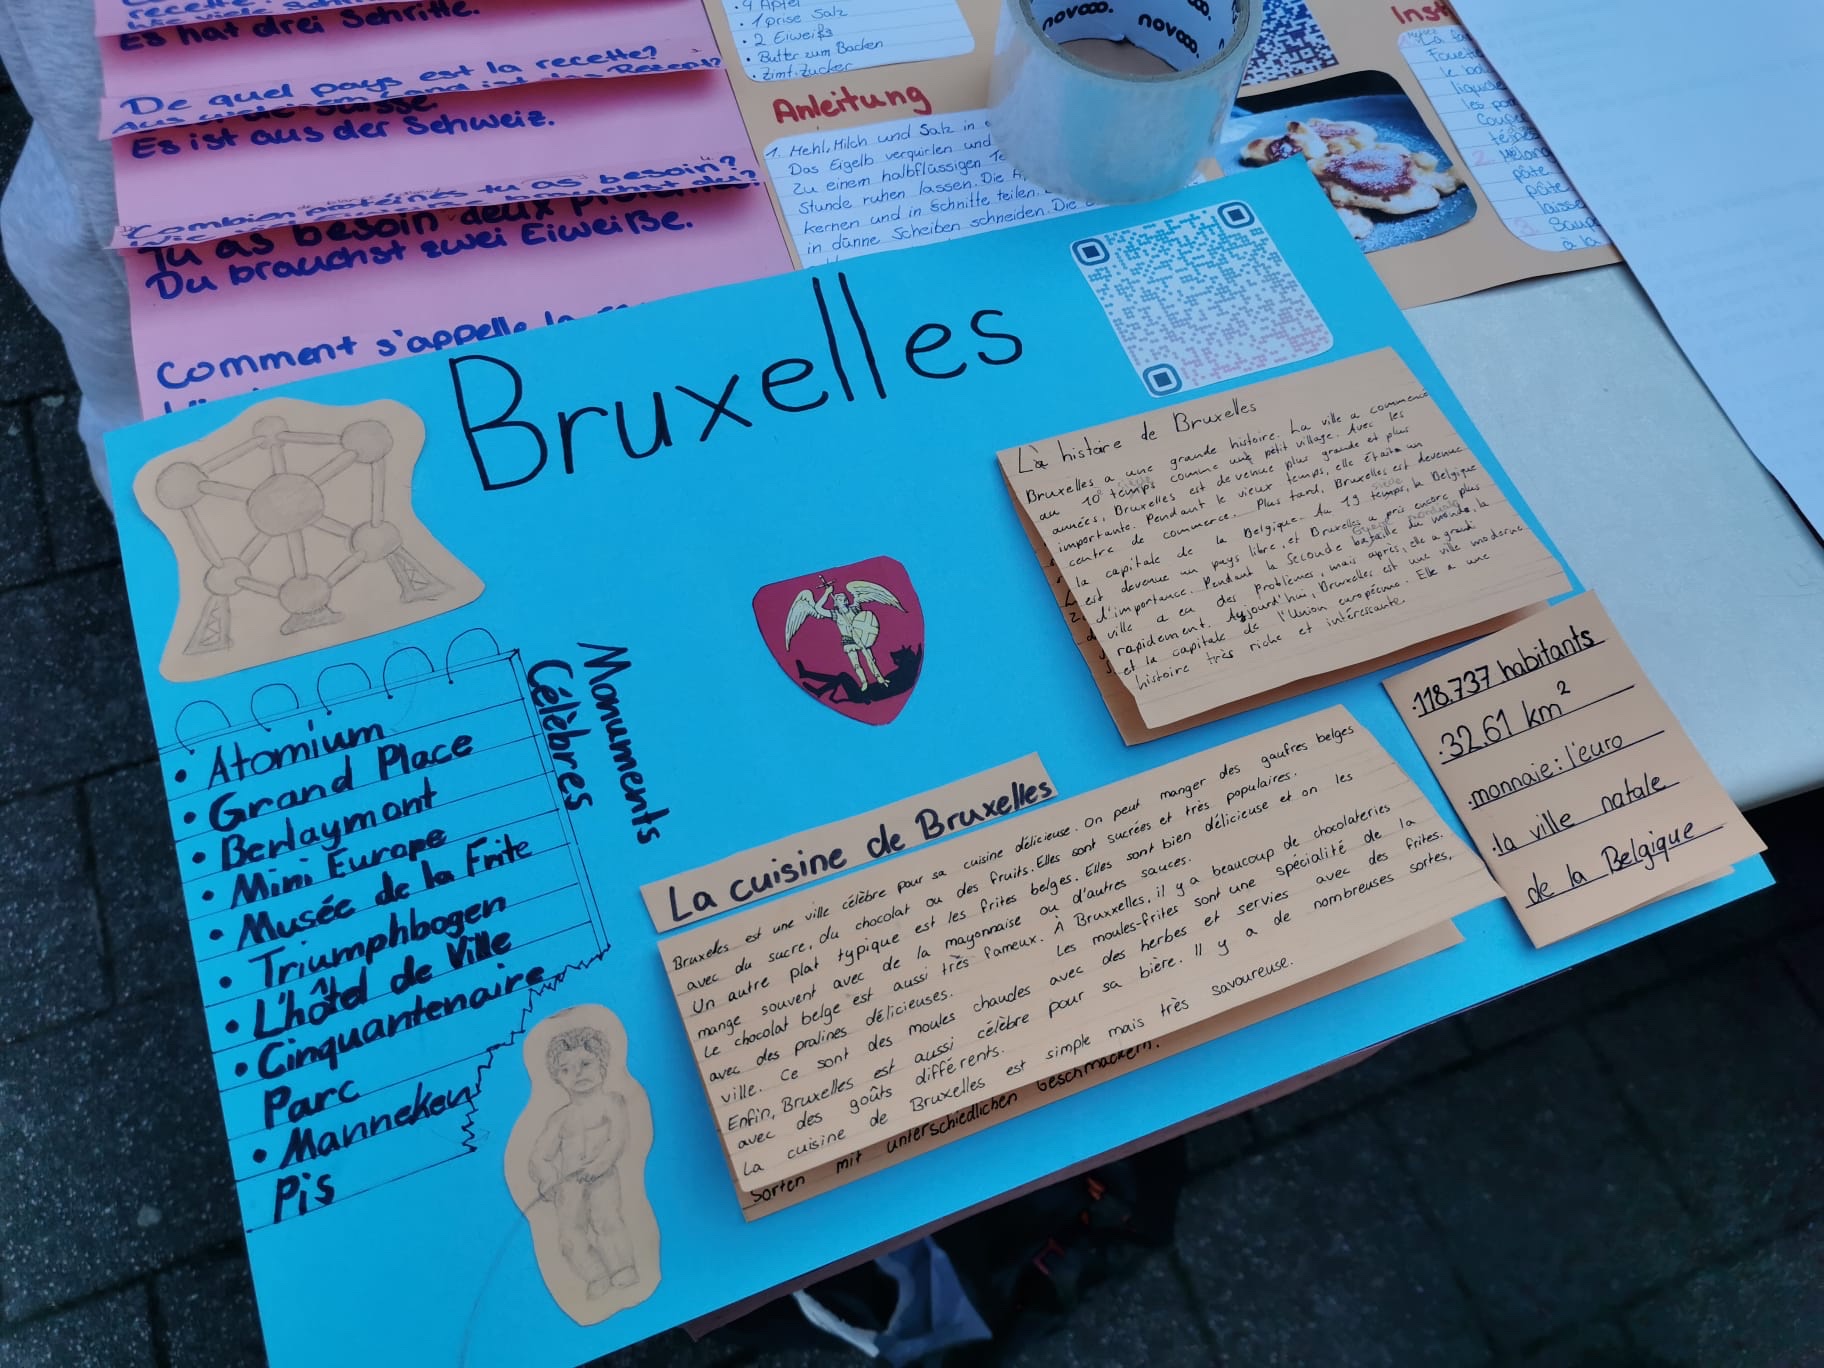 recette?
Es hat drei Schritte.
De quel pays est la recette?
Aus
Suisse
Es ist aus der Schweiz.
Combien protéines tu as besoin?
Tu as besoin deux
Du brauchst zwei Eiweiße.
Comment s'appelle la
• 4 Äpfel
• 1 prise Salz
• 2 Eiweiße
• Butter zum Backen
• Zimt, Zucker
Anleitung
1. Mehl, Milch und Salz in
Das Eigelb verquirlen und
zu einem halbflüssigen Te
Stunde ruhen lassen. Die
kernen und in Schnitte teilen.
in dünne Scheiben schneiden. Die
novooo.
novooo.
Inst
Fouette
liquide
Coupe
2. Mélan
pâte
pâte
laisse
3. Saup
à la
Bruxelles
Monuments
Célèbres
• Atomium
• Grand Place
• Berlaymont
• Mini Europe
• Musée de la Frite
• Triumphbogen
• L'hôtel de Ville
• Cinquantenaire
Parc
• Manneken
Pis
histoire de Bruxelles
Bruxelles a une grande histoire. La ville a commencé
au 10e temps comme une petit village. Avec les
années, Bruxelles est devenue plus grande et plus
importante. Pendant le vieux temps, elle était un
centre de commerce. Plus tard, Bruxelles est devenue
la capitale de la Belgique. Au 19 temps, la Belgique
est devenue un pays libre, et Bruxelles a pris encore plus
d'importance. Pendant la Seconde bataille du monde, la
ville a eu des problèmes, mais après, elle a grandi
rapidement. Aujourd'hui, Bruxelles est une ville moderne
et la capitale de l'Union européenne. Elle a une
histoire très riche et intéressante.
·118.737 habitants
·32.61 km²
·monnaie: l'euro
·la ville natale
de la Belgique
La cuisine de Bruxelles
Bruxelles est une ville célèbre pour sa cuisine délicieuse. On peut manger des gaufres belges
avec du sucre, du chocolat ou des fruits. Elles sont sucrées et très populaires.
Un autre plat typique est les frites belges. Elles sont bien délicieuse et on les
mange souvent avec de la mayonnaise ou d'autres sauces.
Le chocolat belge est aussi très fameux. À Bruxxelles, il y a beaucoup de chocolateries
avec des pralines délicieuses. Les moules-frites sont une spécialité de la
ville. Ce sont des moules chaudes avec des herbes et servies avec des frites.
Enfin, Bruxelles est aussi célèbre pour sa bière. Il y a de nombreuses sortes,
avec des goûts différents.
La cuisine de Bruxelles est simple mais très savoureuse.
Sorten mit unterschiedlichen Geschmäckern.